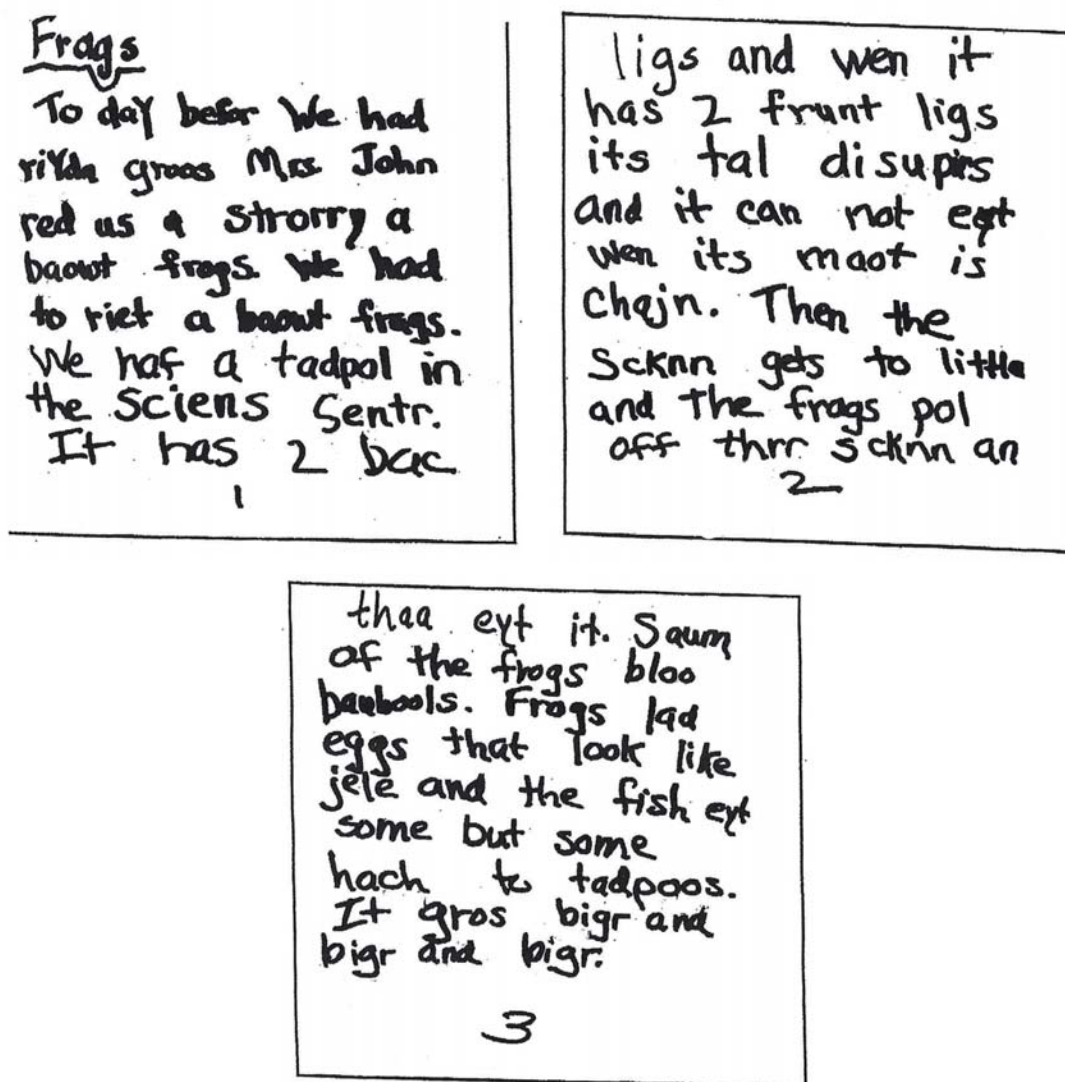 Frags
To day befor We had
riYda groos Mrs. John
red us a strorry a
baowt frogs. We had
to riet a baowt frags.
We haf a tadpol in
the Sciens Sentr.
It has 2 bac
1
ligs and wen it
has 2 frunt ligs
its tal disupirs
and it can not eyt
wen its maot is
Chajn. Then the
Scknn gets to little
and the frags pol
off thrr scknn an
2
thaa eyt it. Saum
of the frogs bloo
baubools. Frogs lad
eggs that look like
jele and the fish eyt
some but some
hach to tadpoos.
It gros bigr and
bigr and bigr.
3